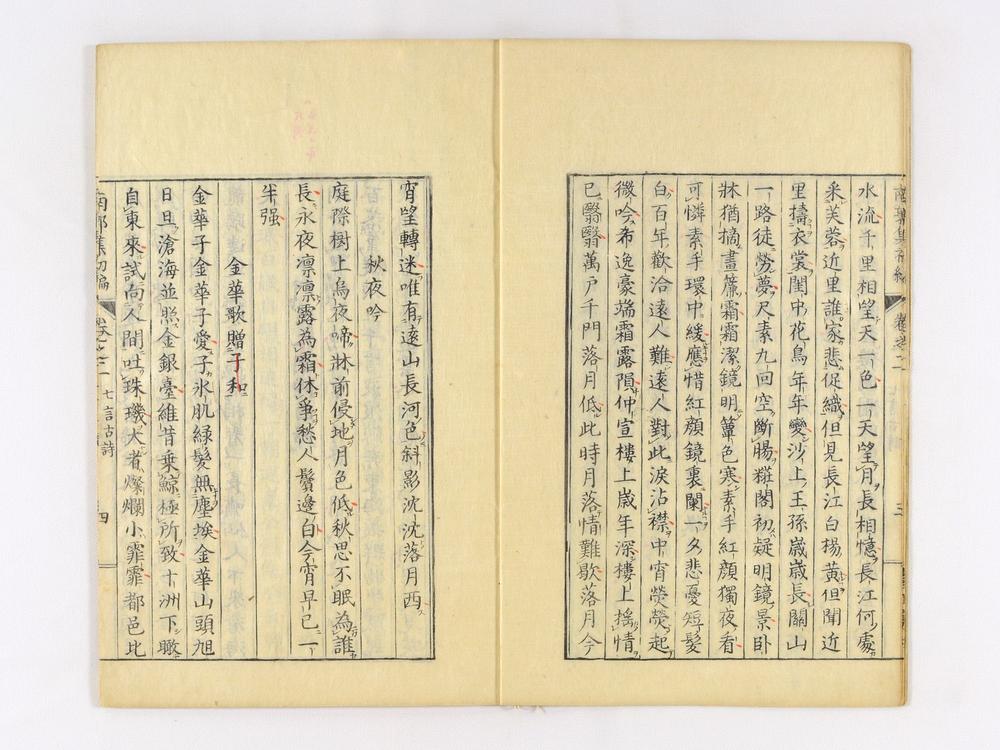 水流千里相望天一色一天望月長相憶長江何處
采芙蓉近里誰家悲促織但見長江白楊黃但聞近
里擣衣裳閨中花鳥年年變沙上王孫歲歲長關山
一路徒勞夢尺素九回空斷腸糚閣初疑明鏡景卧
牀猶摘畫簾霜霜潔鏡明簟色寒素手紅顏獨夜看
可憐素手環中緩應惜紅顏鏡裏闌一夕悲憂短髮
白百年歡洽遠人難遠人對此淚沾襟中宵煢煢起
微吟希逸豪端霜露隕仲宣樓上歲年深樓上搖情
已翳翳萬戶千門落月低此時月落情難歇落月今
宵望轉迷唯有遠山長河色斜影沈沈落月西
秋夜吟
庭際樹上烏夜啼牀前侵地月色低秋思不眠為誰
長永夜凛凛露為霜休爭愁人鬢邊白今宵早已一
半强
金華歌贈子和
金華子金華子愛子氷肌緑髮無塵埃金華山頭旭
日旦滄海並照金銀臺維昔乗鯨極所致十洲下瞰
自東來試向人間吐珠璣大者燦爛小霏霏都邑此
南郭集初編 卷之二 七言古詩 四